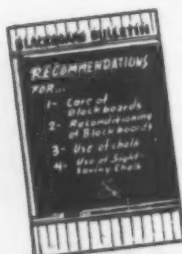 RECOMMENDATIONS
FOR...
1- Care of
Blackboards
2- Reconditioning
of Blackboards
3- Use of chalk
4- Use of Sight-
Saving Chalk